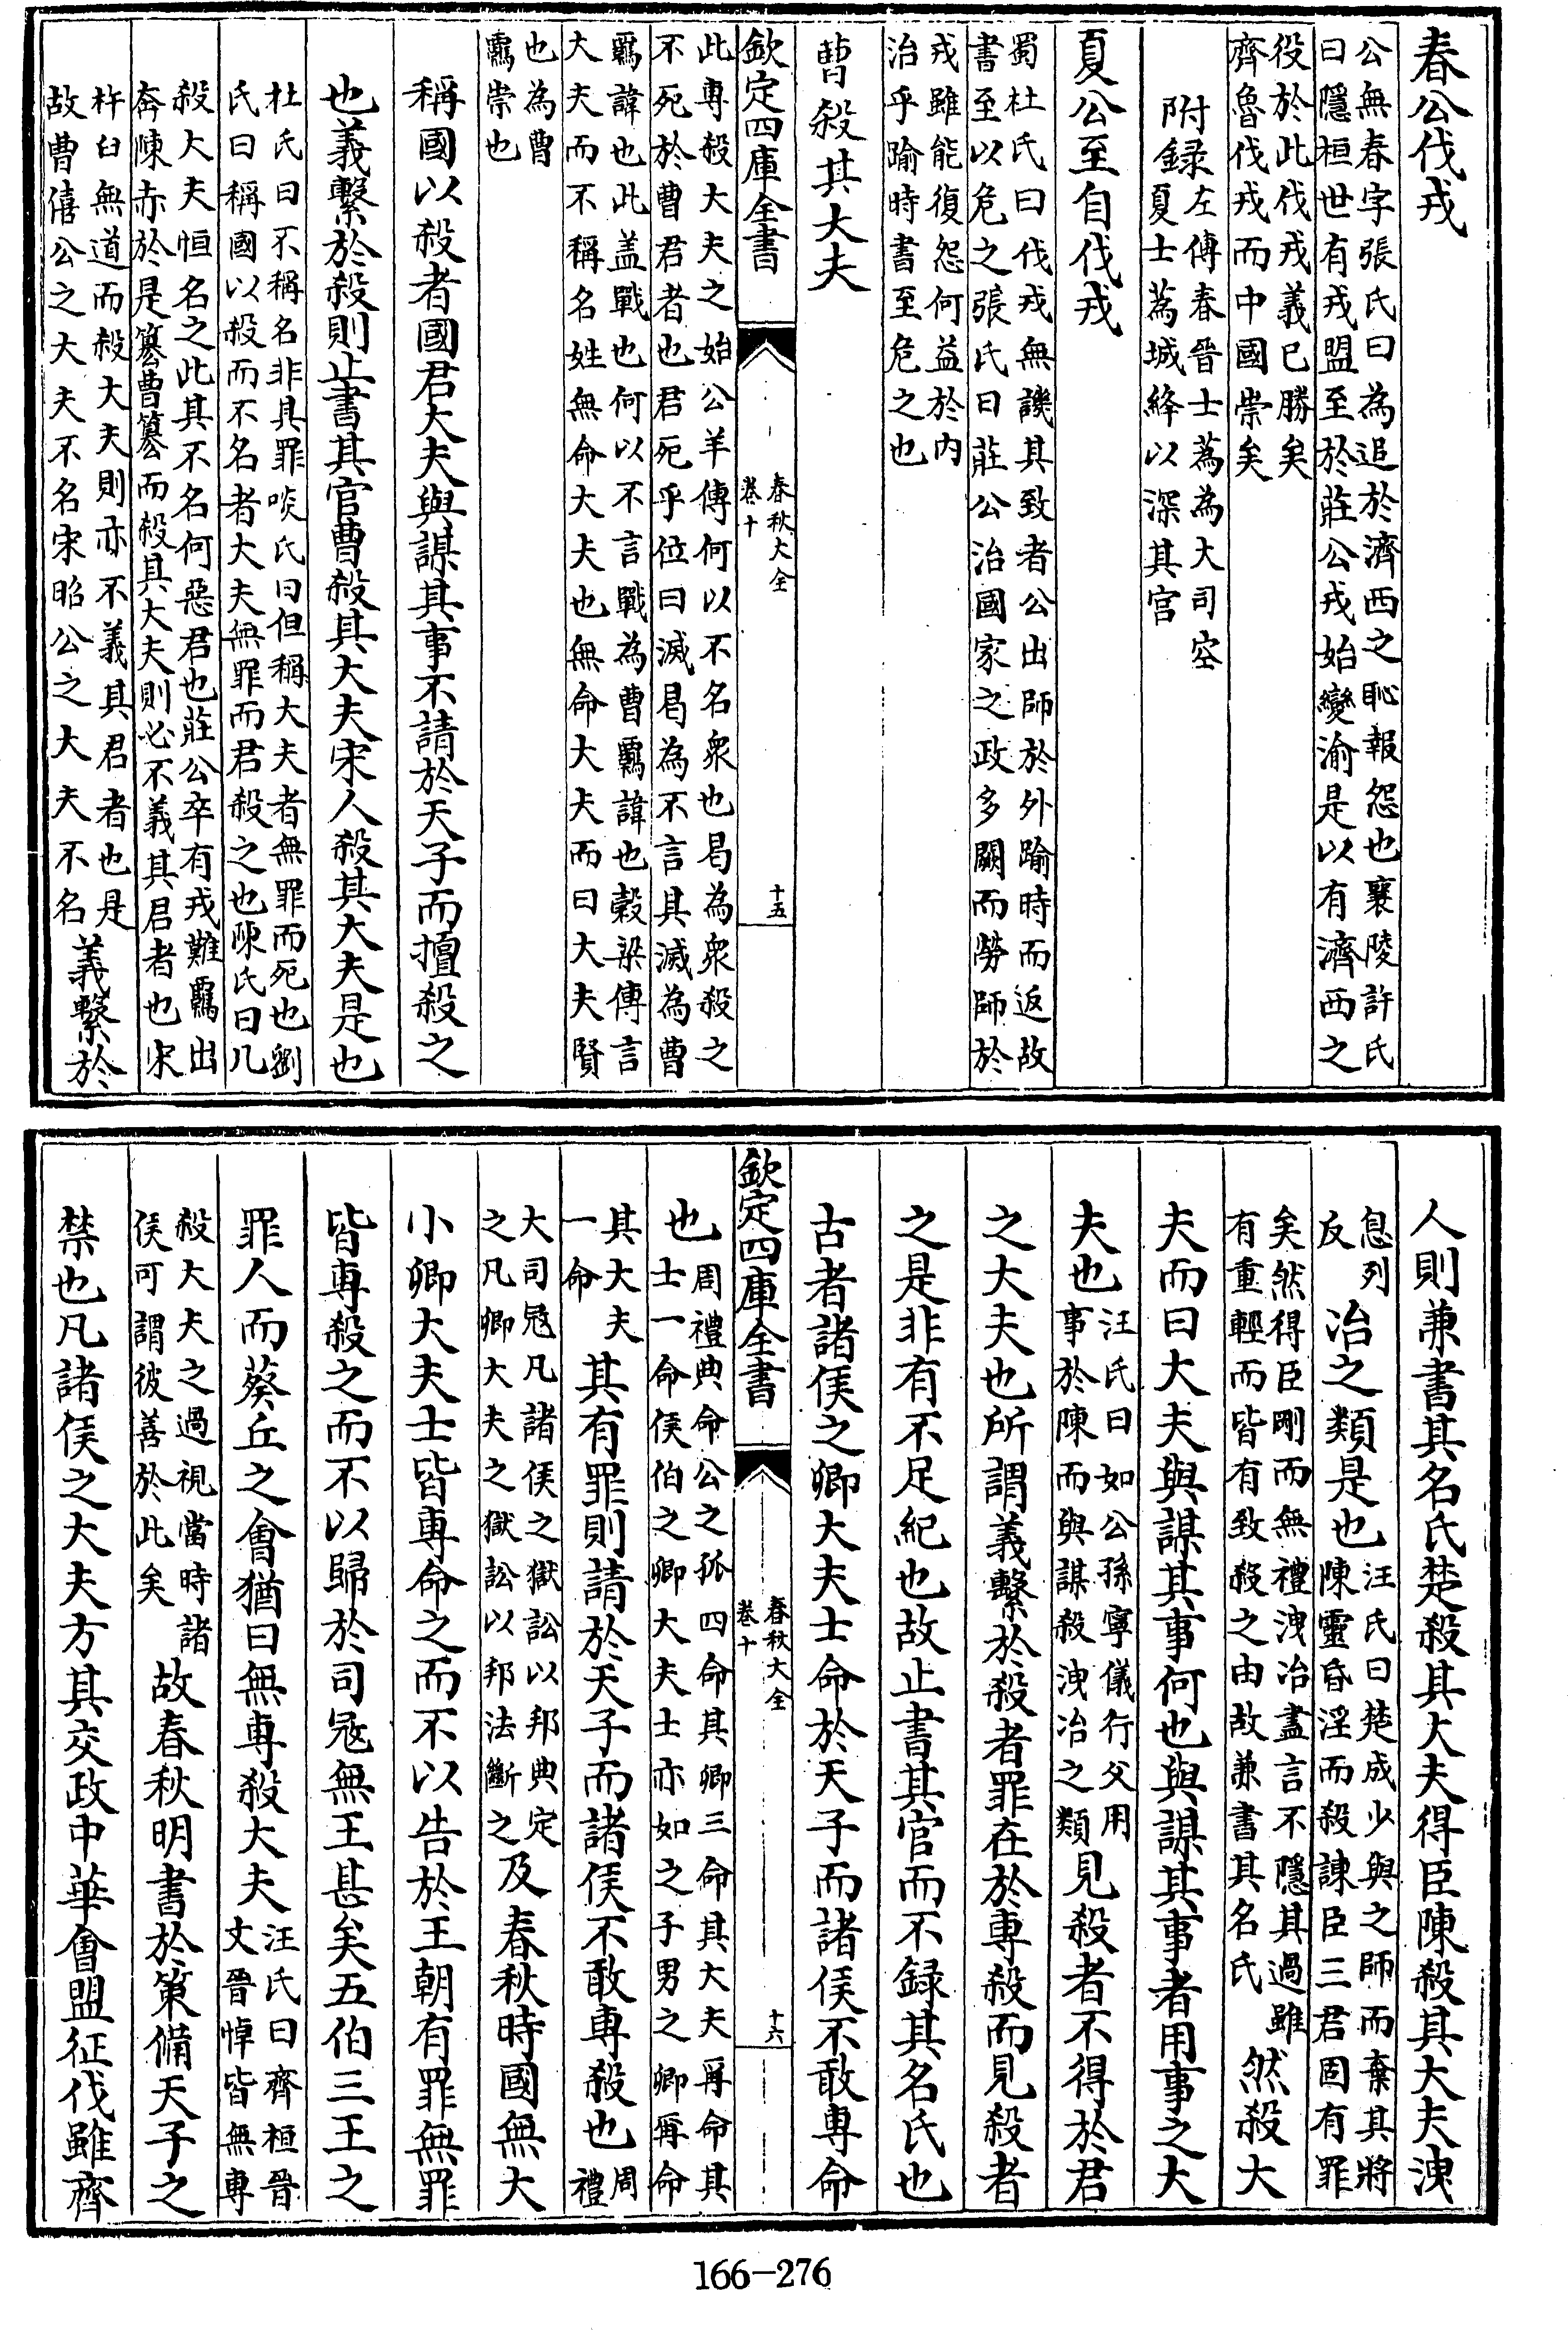 春公伐戎
公無春字張氏曰為追於濟西之恥報怨也襄陵許氏
曰隱桓世有戎盟至於莊公戎始變渝是以有濟西之
役於此伐戎義已勝矣
齊魯伐戎而中國崇矣
附録左傳春晉士蒍為大司空
夏士蒍城絳以深其宫
夏公至自伐戎
蜀杜氏曰伐戎無譏其致者公出師於外踰時而返故
書至以危之張氏曰莊公治國家之政多闕而勞師於
戎雖能復怨何益於内
治乎踰時書至危之也
曹殺其大夫
欽定四庫全書
春秋大全
卷十
十五
此專殺大夫之始公羊傳何以不名衆也曷為衆殺之
不死於曹君者也君死乎位曰滅曷為不言其滅為曹
羈諱也此盖戰也何以不言戰為曹羈諱也榖梁傳言
大夫而不稱名姓無命大夫也無命大夫而曰大夫賢
也為曹
羈崇也
稱國以殺者國君大夫與謀其事不請於天子而擅殺之
也義繫於殺則止書其官曹殺其大夫宋人殺其大夫是也
杜氏曰不稱名非其罪啖氏曰但稱大夫者無罪而死也劉
氏曰稱國以殺而不名者大夫無罪而君殺之也陳氏曰凡
殺大夫恒名之此其不名何惡君也莊公卒有戎難羈出
奔陳赤於是簒曹簒而殺其大夫則必不義其君者也宋
杵臼無道而殺大夫則亦不義其君者也是
故曹僖公之大夫不名宋昭公之大夫不名
義繫於
人則兼書其名氏楚殺其大夫得臣陳殺其大夫洩
息列
反
冶之類是也
汪氏曰楚成少與之師而棄其將
陳靈昏淫而殺諌臣三君固有罪
矣然得臣剛而無禮洩冶盡言不隱其過雖
有重輕而皆有致殺之由故兼書其名氏
然殺大
夫而曰大夫與謀其事何也與謀其事者用事之大
夫也
汪氏曰如公孫寧儀行父用
事於陳而與謀殺洩冶之類
見殺者不得於君
之大夫也所謂義繫於殺者罪在於專殺而見殺者
之是非有不足紀也故止書其官而不録其名氏也
古者諸侯之卿大夫士命於天子而諸侯不敢專命
欽定四庫全書
春秋大全
卷十
十六
也
周禮典命公之孤四命其卿三命其大夫再命其
士一命侯伯之卿大夫士亦如之子男之卿再命
其大夫
一命
其有罪則請於天子而諸侯不敢專殺也
周
禮
大司冦凡諸侯之獄訟以邦典定
之凡卿大夫之獄訟以邦法斷之
及春秋時國無大
小卿大夫士皆專命之而不以告於王朝有罪無罪
皆專殺之而不以歸於司冦無王甚矣五伯三王之
罪人而葵丘之會猶曰無專殺大夫
汪氏曰齊桓晉
文晉悼皆無專
殺大夫之過視當時諸
侯可謂彼善於此矣
故春秋明書於策備天子之
禁也凡諸侯之大夫方其交政中華會盟征伐雖齊
166-276